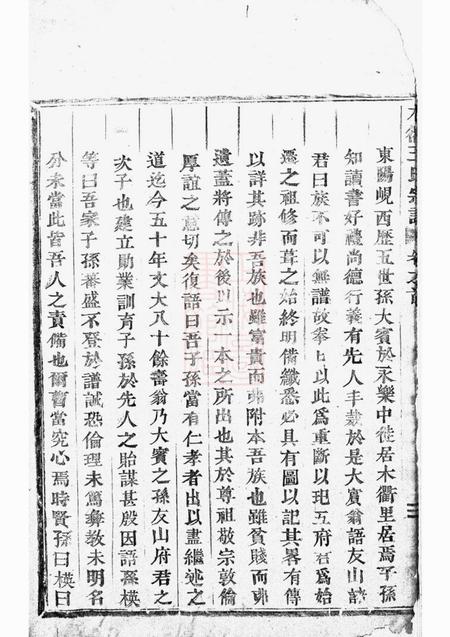 東陽峴西歷五世孫大賓於永樂中徙居木衢里居焉子孫
知讀書好禮尚德行義有先人丰裁於是大賓翁語友山諸
君曰族不可以無譜故拳以此為重斷以玘五府君為始
遷之祖修而葺之始終明備纖悉必具有圖以記其畧有傳
以詳其跡非吾族也雖富貴而弗附本吾族也雖貧賤而弗
遺蓋將傳之於後以示一本之所出也其於尊祖敬宗敦倫
厚誼之意切矣復語曰吾子孫當有仁孝者出以盡繼述之
道迄今五十年文大八十餘審翁乃大賓之孫友山府君之
次子也建立勛業訓育子孫於先人之貽謀甚殷因語孫橫
等曰吾家子孫蕃盛不登於譜誠恐倫理未篤彝教未明名
分未當此皆吾人之責備也爾曹當究心焉時賢孫曰橫曰